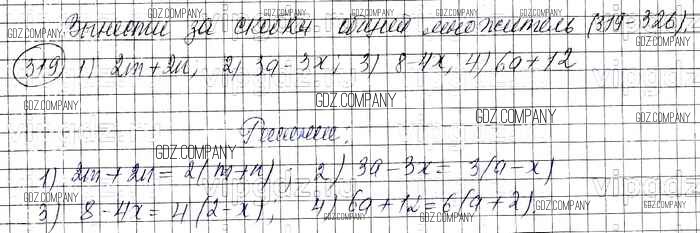 Вынести за скобки общий множитель (319-326).
319) 1) 2m+2n, 2) 3a-3x; 3) 8-4x, 4) 6a+12
Решение.
1) 2m+2n=2(m+n); 2) 3a-3x=3(a-x)
3) 8-4x=4(2-x); 4) 6a+12=6(a+2).
GDZ.COMPANY